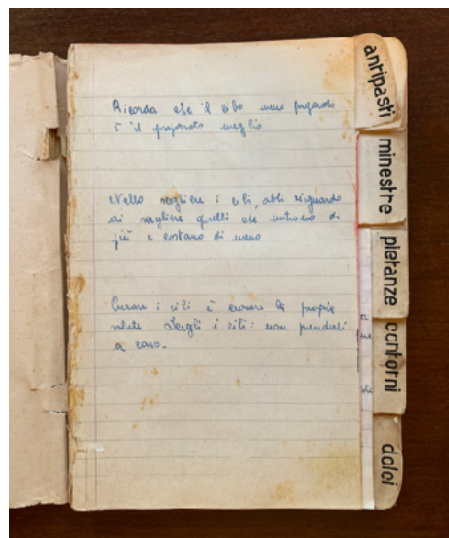 Ricorda che il cibo meno preparato
è il preparato meglio
Nello scegliere i cibi, abbi riguardo
di scegliere quelli che nutrono di
più e costano di meno
Curare i cibi è curare la propria
salute Scegli i cibi: non prenderli
a caso.
antipasti
minestre
pietanze
contorni
dolci